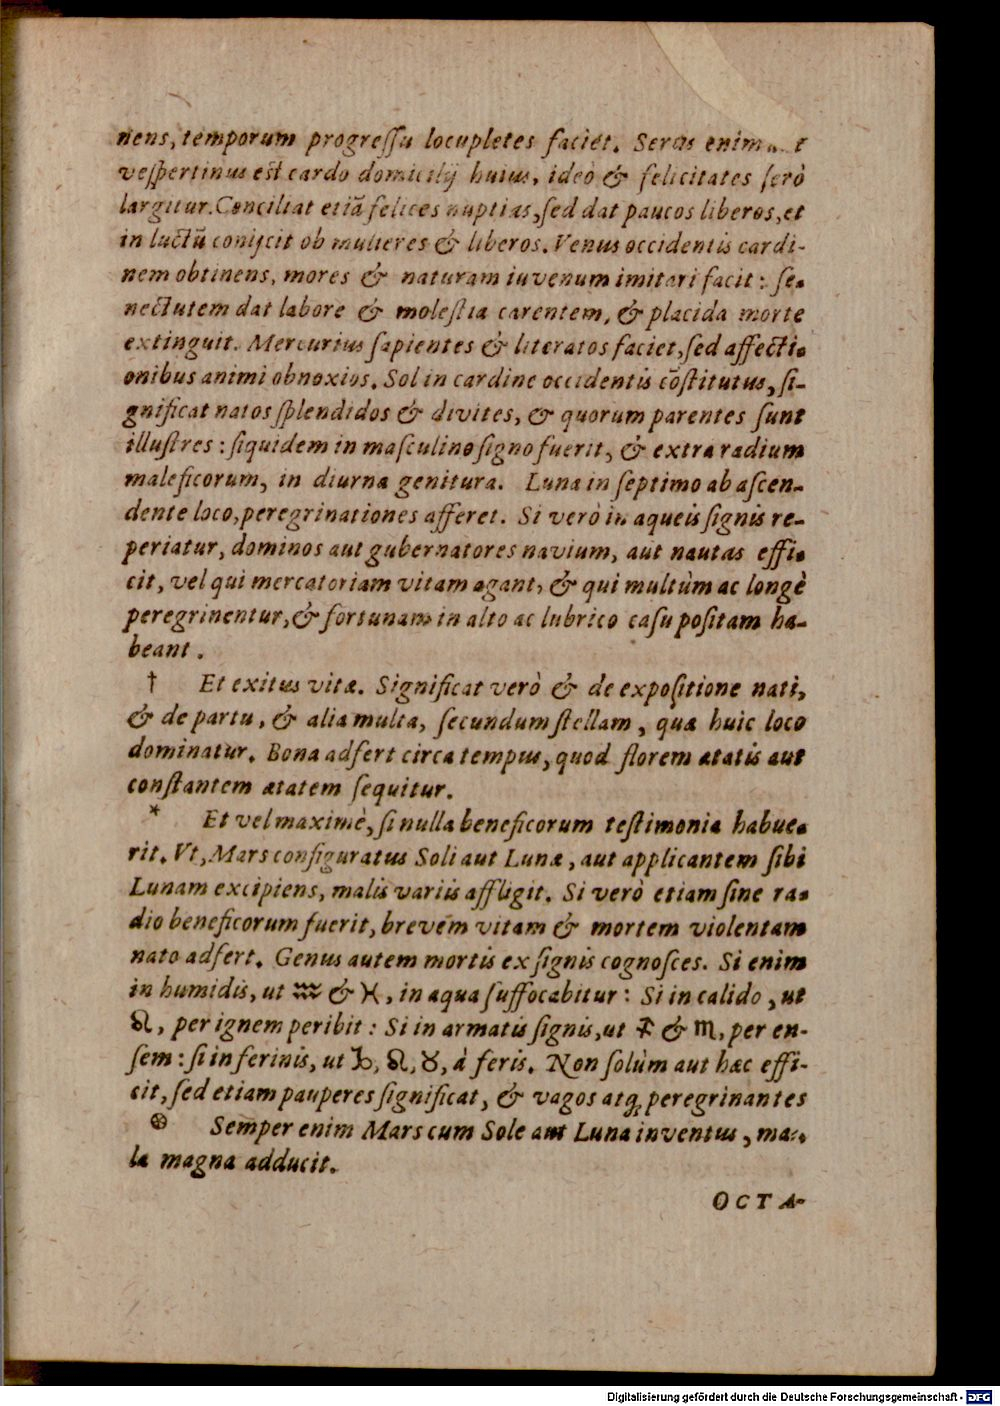 nens, temporum progreſſu locupletes faciet. Serus enim
veſpertinus est cardo domicilij huius, ideò & felicitates ſerò
largitur. Conciliat etiã felices nuptias, ſed dat paucos liberos, et
in luctũ conijcit ob mulieres & liberos. Venus occidentis cardi-
nem obtinens, mores & naturam iuvenum imitari facit: ſe-
nectutem dat labore & moleſtia carentem, & placida morte
extinguit. Mercurius ſapientes & literatos faciet, ſed affecti-
onibus animi obnoxios. Sol in cardine occidentis cõſtitutus, ſi-
gnificat natos ſplendidos & divites, & quorum parentes ſunt
illuſtres: ſiquidem in maſculino ſigno fuerit, & extra radium
maleficorum, in diurna genitura. Luna in ſeptimo ab aſcen-
dente loco, peregrinationes afferet. Si verò in aqueis ſignis re-
periatur, dominos aut gubernatores navium, aut nautas effi-
cit, vel qui mercatoriam vitam agant, & qui multùm ac longè
peregrinentur, & fortunam in alto ac lubrico caſu poſitam ha-
beant.
† Et exitus vitæ. Significat verò & de expoſitione nati,
& de partu, & alia multa, ſecundum ſtellam, quæ huic loco
dominatur. Bona adfert circa tempus, quod florem ætatis aut
conſtantem ætatem ſequitur.
* Et vel maximè, ſi nulla beneficorum teſtimonia habue-
rit. Vt, Mars configuratus Soli aut Lunæ, aut applicantem ſibi
Lunam excipiens, malis variis affligit. Si verò etiam ſine ra-
dio beneficorum fuerit, brevem vitam & mortem violentam
nato adfert. Genus autem mortis ex ſignis cognoſces. Si enim
in humidis, ut ♒ & ♓, in aqua ſuffocabitur: Si in calido, ut
♌, per ignem peribit: Si in armatis ſignis, ut ♐ & ♏, per en-
ſem: ſi in ferinis, ut ♑, ♌, ♉, à feris. Non ſolùm aut hæc effi-
cit, ſed etiam pauperes ſignificat, & vagos atq; peregrinantes
⊛ Semper enim Mars cum Sole aut Luna inventus, ma-
la magna adducit.
OCTA-
Digitalisierung gefördert durch die Deutsche Forschungsgemeinschaft - DFG